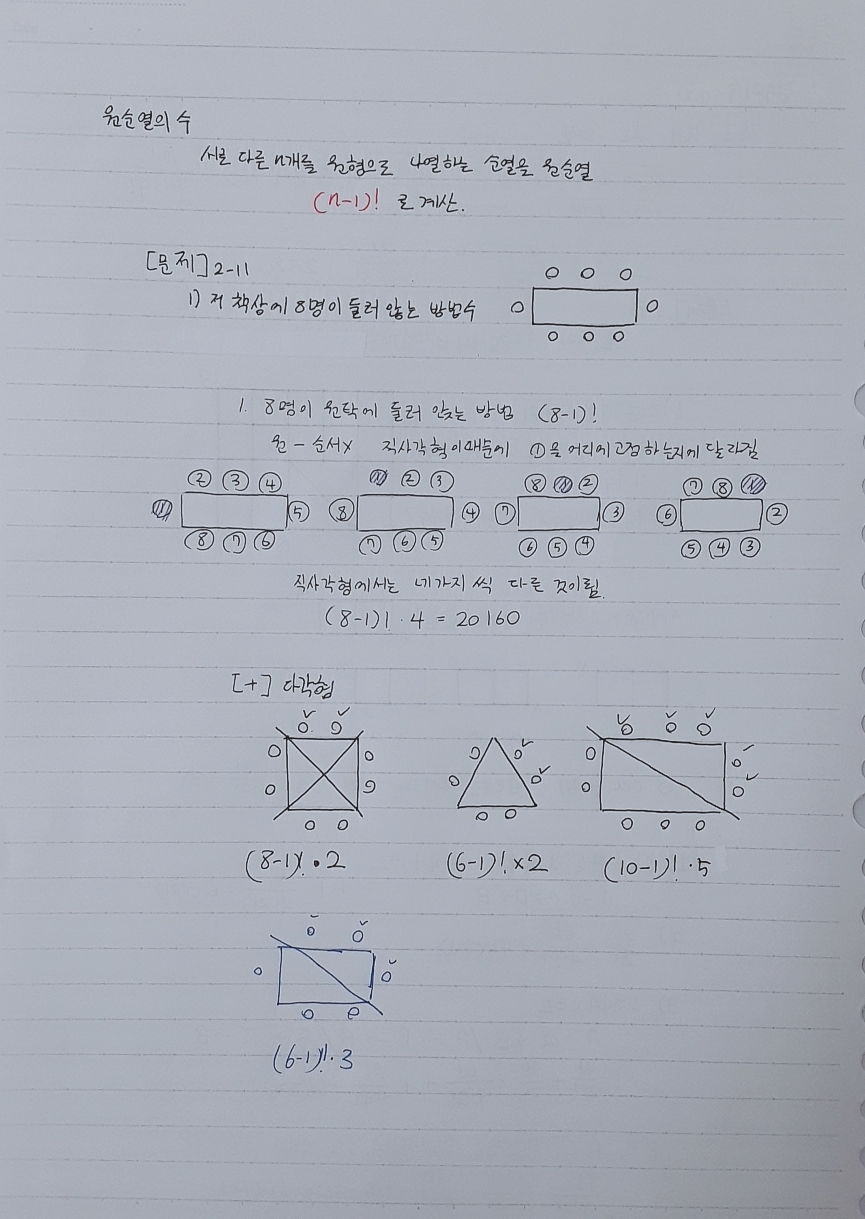 원순열의 수
서로 다른 n개를 원형으로 나열하는 순열을 원순열
(n-1)! 로 계산.
[문제] 2-11
1) 저 책상에 8명이 둘러 앉는 방법수
1. 8명이 원탁에 둘러 앉는 방법 (8-1)!
원 - 순서x 직사각형이때문에 ①을 어디에 고정하는지에 달라짐
② ③ ④
① ⑤
⑧ ⑦ ⑥
① ② ③
⑧ ④
⑦ ⑥ ⑤
⑧ ① ②
⑦ ③
⑥ ⑤ ④
⑦ ⑧ ①
⑥ ②
⑤ ④ ③
직사각형에서는 네가지 씩 다른 것이됨.
(8-1)! · 4 = 20160
[+] 다각형
(8-1)! · 2
(6-1)! × 2
(10-1)! · 5
(6-1)! · 3